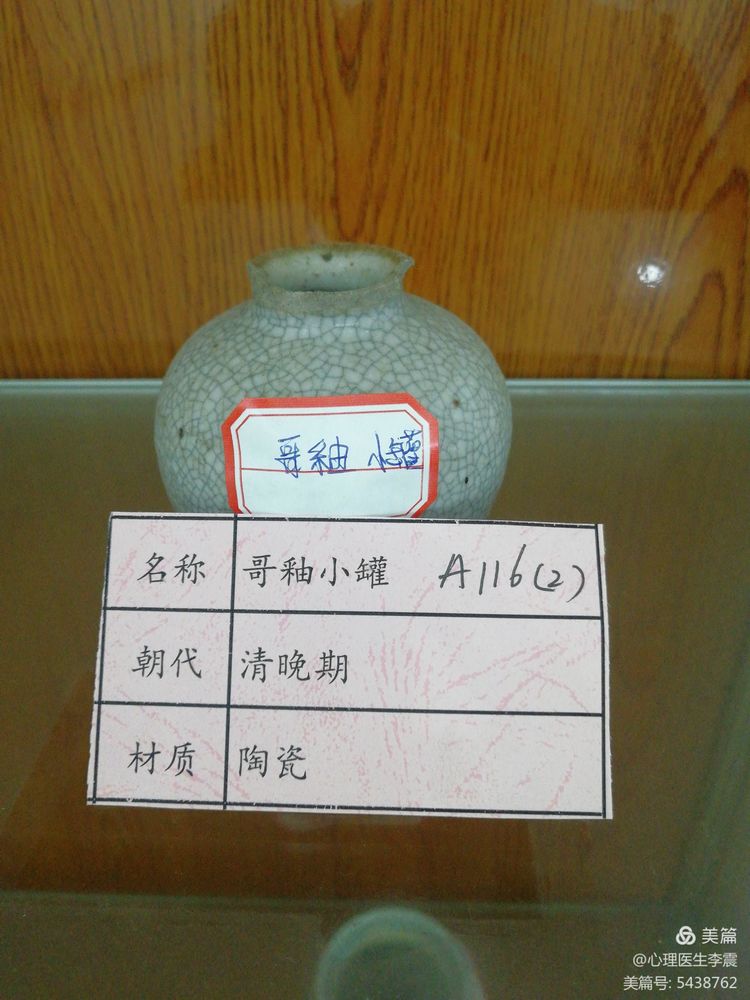 哥釉 小罐
名称 哥釉小罐 A116(2)
朝代 清晚期
材质 陶瓷
美篇
@心理医生李震
美篇号: 5438762